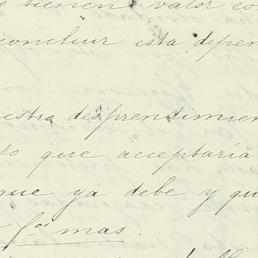 tienen valor co
concluir esta depen
estra desprendimien
to que acceptaría
que ya debe y qu
mas.